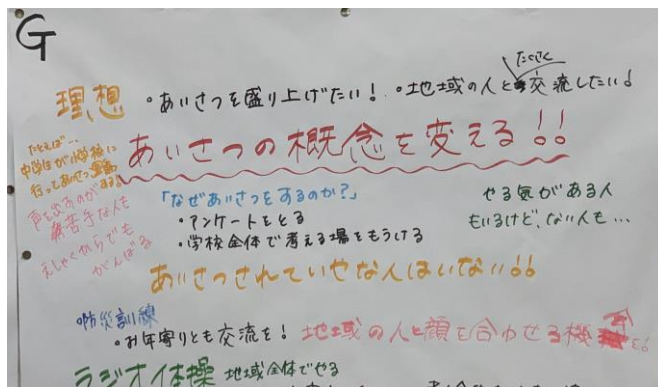 G
理想 ・あいさつを盛り上げたい! ・地域の人とたくさん交流したい!
あいさつの概念を変える!!
たとえば…
中学生が小学校に
行ってあいさつ運動
声を出すのが
苦手な人も
えしゃくからでも
がんばる
「なぜあいさつをするのか?」
・アンケートをとる
・学校全体で考える場をもうける
やる気がある人
もいるけど、ない人も…
あいさつされていやな人はいない!!
防災訓練
・お年寄りとも交流を! 地域の人と顔を合わせる機会を!
ラジオ体操 地域全体でやる